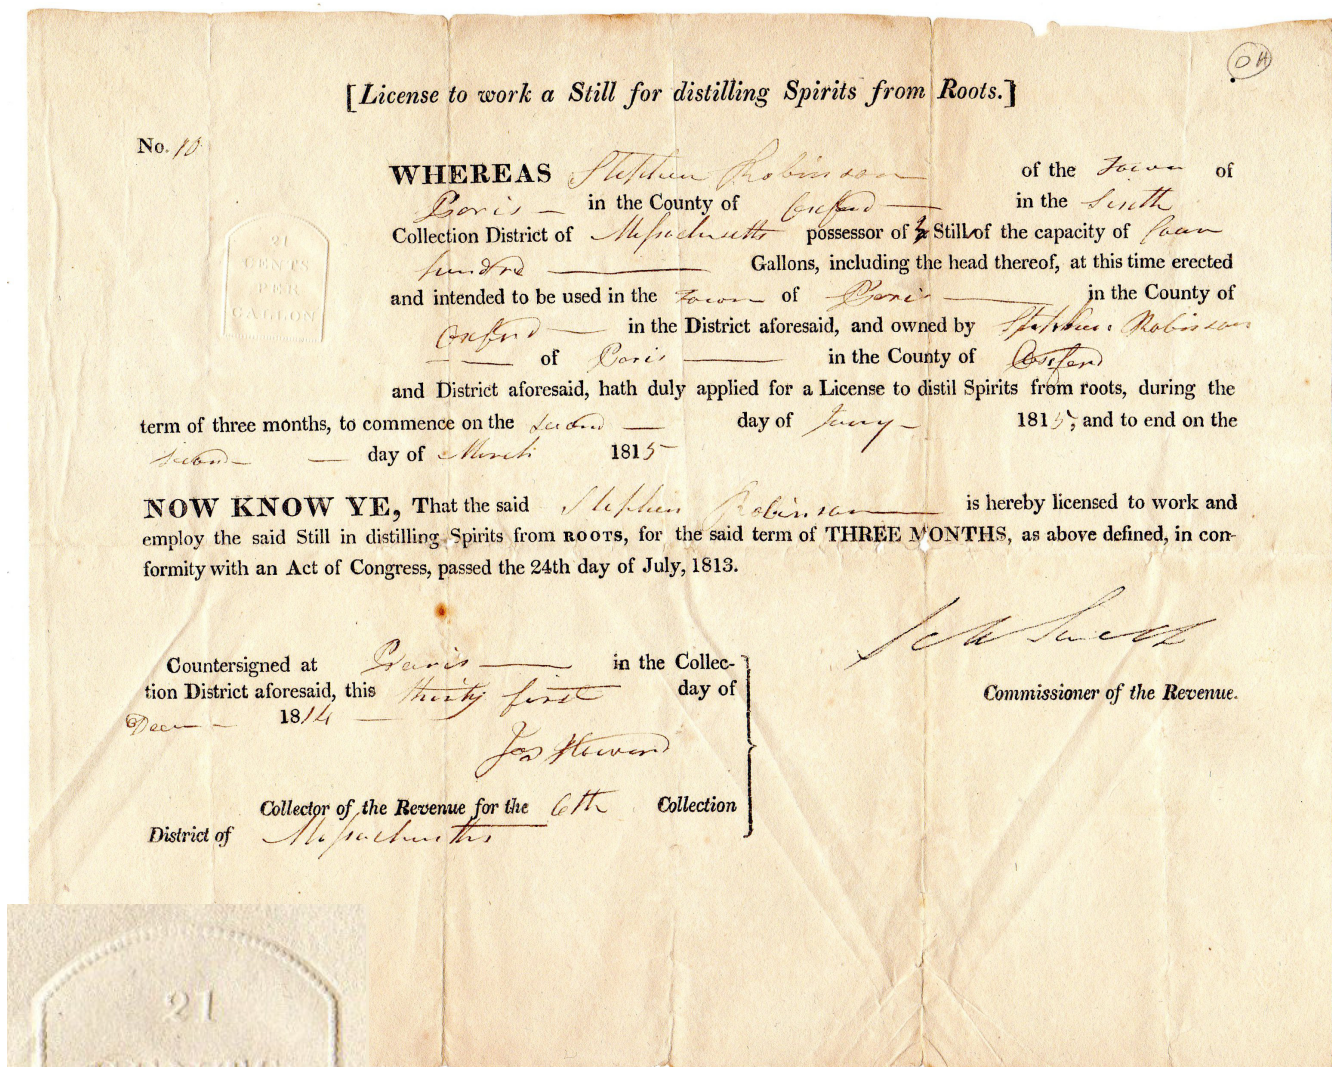 OH
[License to work a Still for distilling Spirits from Roots.]
No. 10
WHEREAS Stephen Robinson of the Town of
Paris in the County of Oxford in the Sixth
Collection District of Massachusetts possessor of Still of the capacity of
hundred Gallons, including the head thereof, at this time erected
and intended to be used in the Town of Paris in the County of
Oxford in the District aforesaid, and owned by Stephen Robinson
of Paris in the County of Oxford
and District aforesaid, hath duly applied for a License to distil Spirits from roots, during the
term of three months, to commence on the second day of Jany 1815, and to end on the
second day of March 1815
21
CENTS
PER
GALLON
NOW KNOW YE, That the said Stephen Robinson is hereby licensed to work and
employ the said Still in distilling Spirits from ROOTS, for the said term of THREE MONTHS, as above defined, in con-
formity with an Act of Congress, passed the 24th day of July, 1813.
Commissioner of the Revenue.
Countersigned at Paris in the Collec-
tion District aforesaid, this thirty first day of
Decr 1814
Jas Howard
Collector of the Revenue for the 6th Collection
District of Massachusetts
21